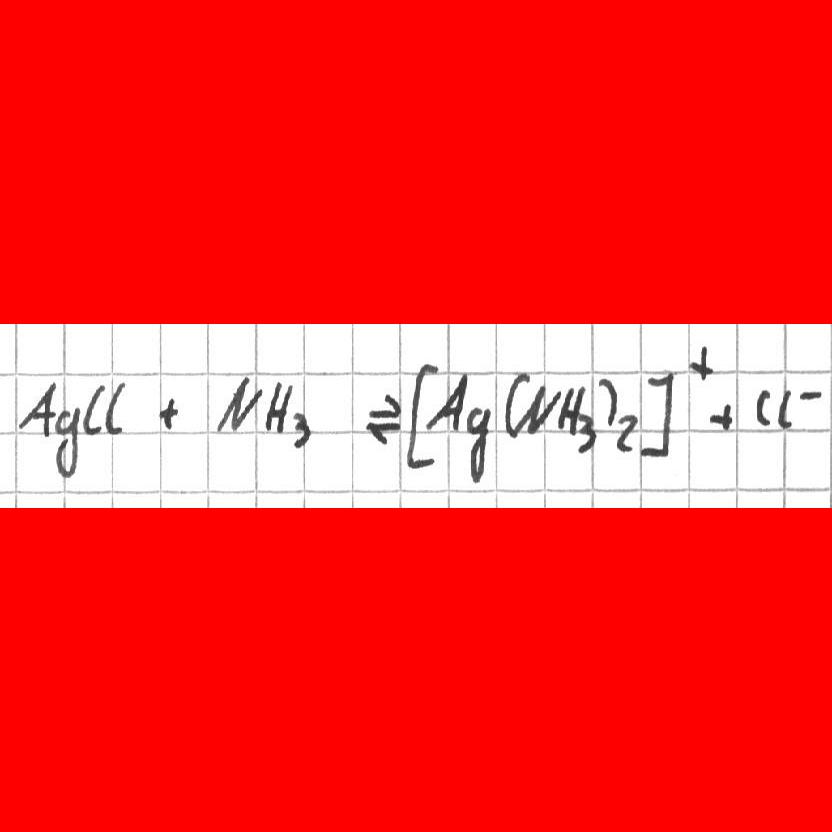 AgCl + NH₃ ⇌ [Ag(NH₃)₂]⁺ + Cl⁻